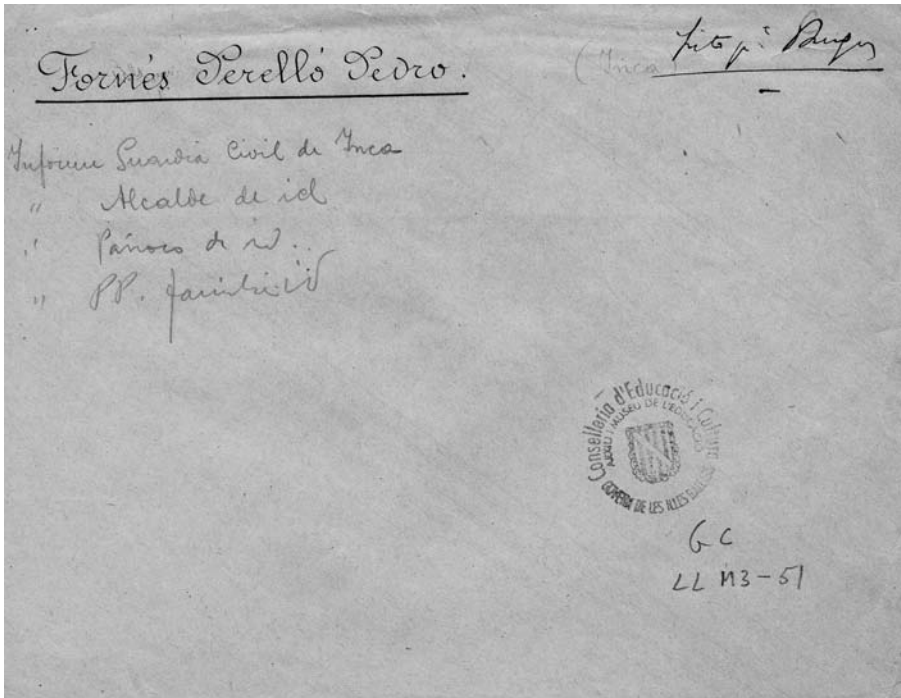 Fornés Perelló Pedro.
(Inca
Burgos
Informe Guardia Civil de Inca
" Alcalde de id
" Párroco de id.
" PP. familia
Conselleria d'Educació i Cultura
ARXIU I MUSEU DE L'EDUCACIÓ
GOVERN DE LES ILLES BALEARS
GC
LL M3-51